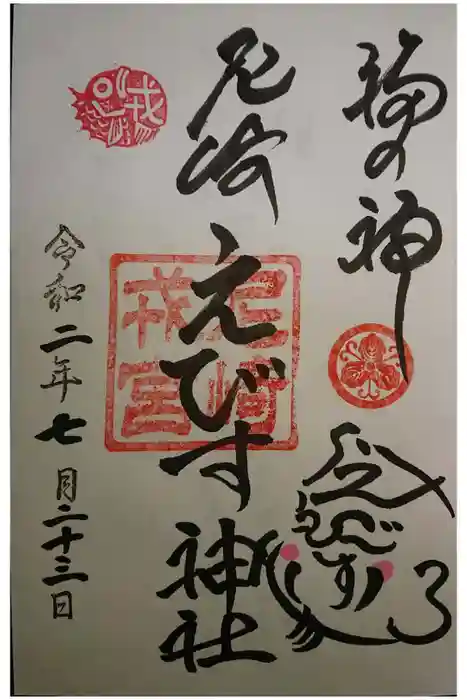 福の神
尼崎えびす神社
尼崎戎宮
えびす
令和二年七月二十三日